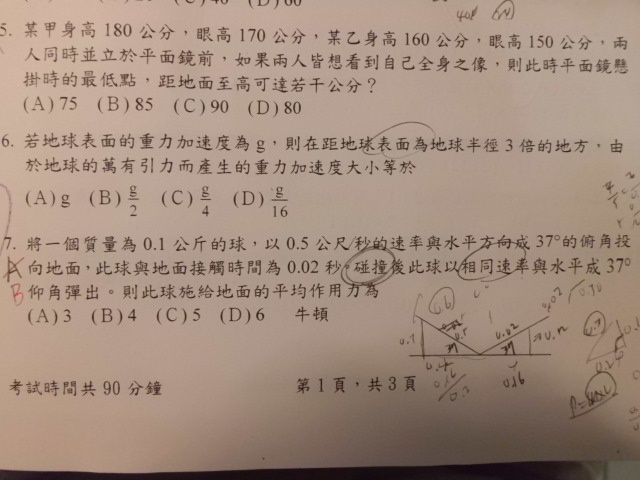 5. 某甲身高 180 公分，眼高 170 公分，某乙身高 160 公分，眼高 150 公分，兩
人同時並立於平面鏡前，如果兩人皆想看到自己全身之像，則此時平面鏡懸
掛時的最低點，距地面至高可達若干公分？
(A) 75 (B) 85 (C) 90 (D) 80
6. 若地球表面的重力加速度為 g，則在距地球表面為地球半徑 3 倍的地方，由
於地球的萬有引力而產生的重力加速度大小等於
(A) g (B) g/2 (C) g/4 (D) g/16
7. 將一個質量為 0.1 公斤的球，以 0.5 公尺/秒的速率與水平方向成 37°的俯角投
A 向地面，此球與地面接觸時間為 0.02 秒，碰撞後此球以相同速率與水平成 37°
B 仰角彈出。則此球施給地面的平均作用力為
(A) 3 (B) 4 (C) 5 (D) 6 牛頓
37 37
0.16
考試時間共 90 分鐘 第 1 頁，共 3 頁